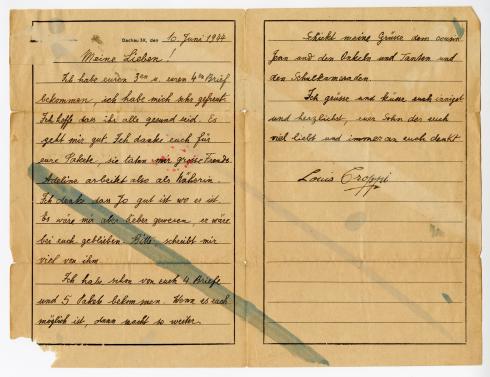 Dachau 3K, den 10 Juni 1944
Meine Lieben!
Ich habe euren 3en u. euren 4en Brief
bekommen, ich habe mich sehr gefreut.
Ich hoffe dass ihr alle gesund seid. Es
geht mir gut. Ich danke euch für
eure Pakete, sie taten mir grosse Freude.
Adeline arbeitet also als Näherin.
Ich denke dass Jo gut ist wo er ist.
Es wäre mir aber lieber gewesen, er wäre
bei euch geblieben. Bitte, schreibt mir
viel von ihm.
Ich habe schon von euch 4 Briefe
und 5 Pakete bekommen. Wenn es euch
möglich ist, dann macht so weiter.
Schickt meine Grüsse dem cousin
Jean und den Onkeln und Tanten und
den Schulkameraden.
Ich grüsse und küsse euch innigst
und herzlichst, euer Sohn der euch
viel liebt und immer an euch denkt
Louis Croppi